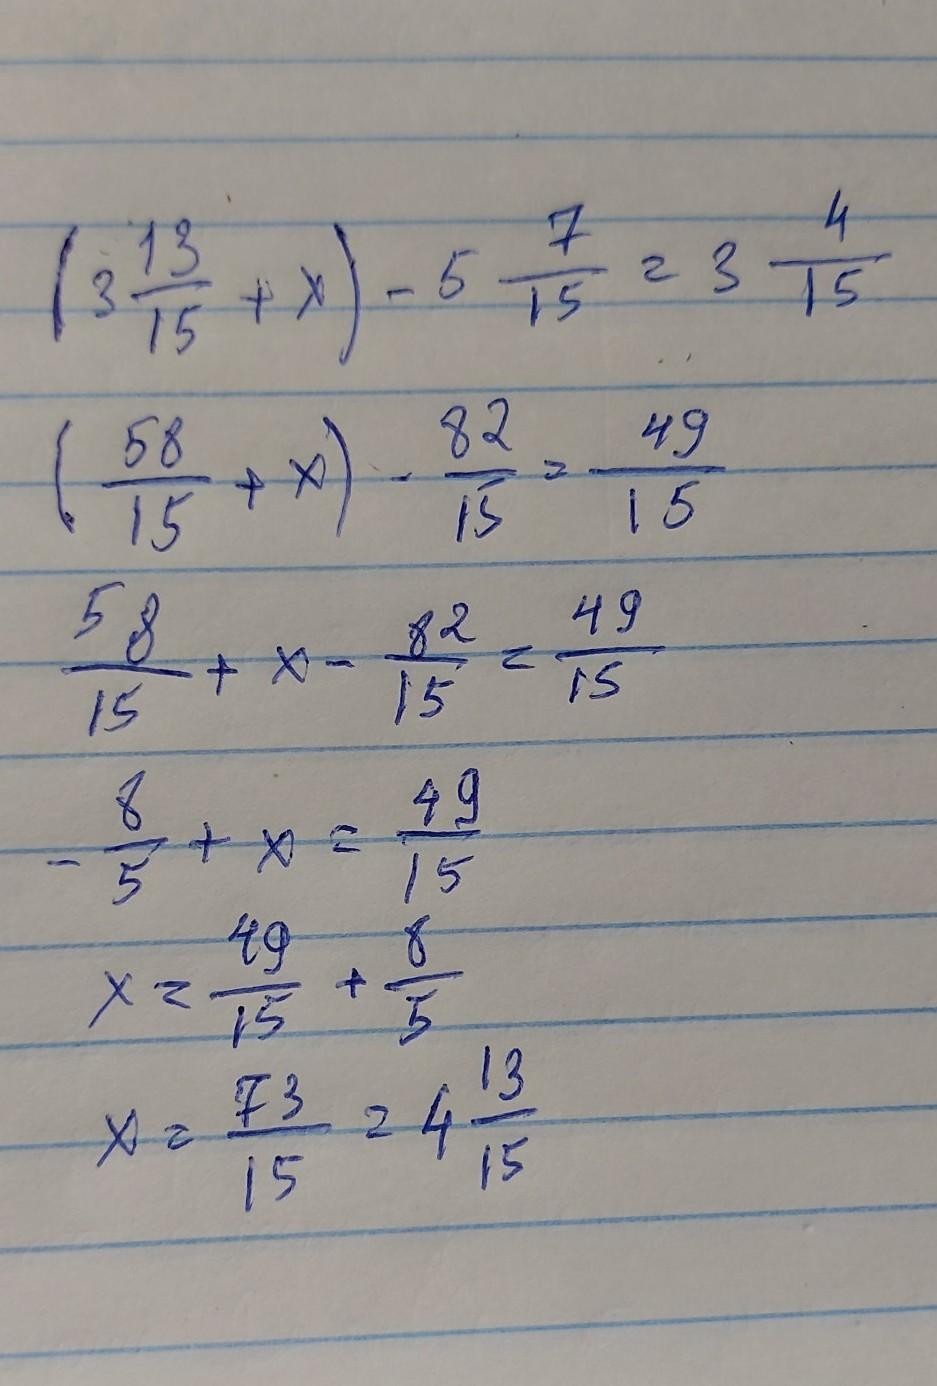 (3 13/15 + x) - 5 7/15 = 3 4/15
(58/15 + x) - 82/15 = 49/15
58/15 + x - 82/15 = 49/15
- 8/5 + x = 49/15
x = 49/15 + 8/5
x = 73/15 = 4 13/15